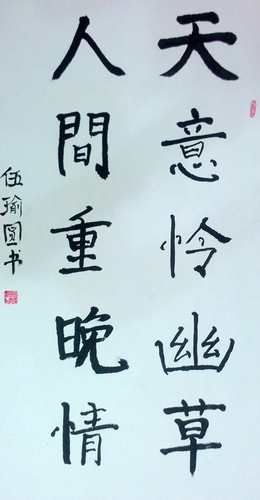 天意怜幽草
人間重晚情
伍瑜圆书